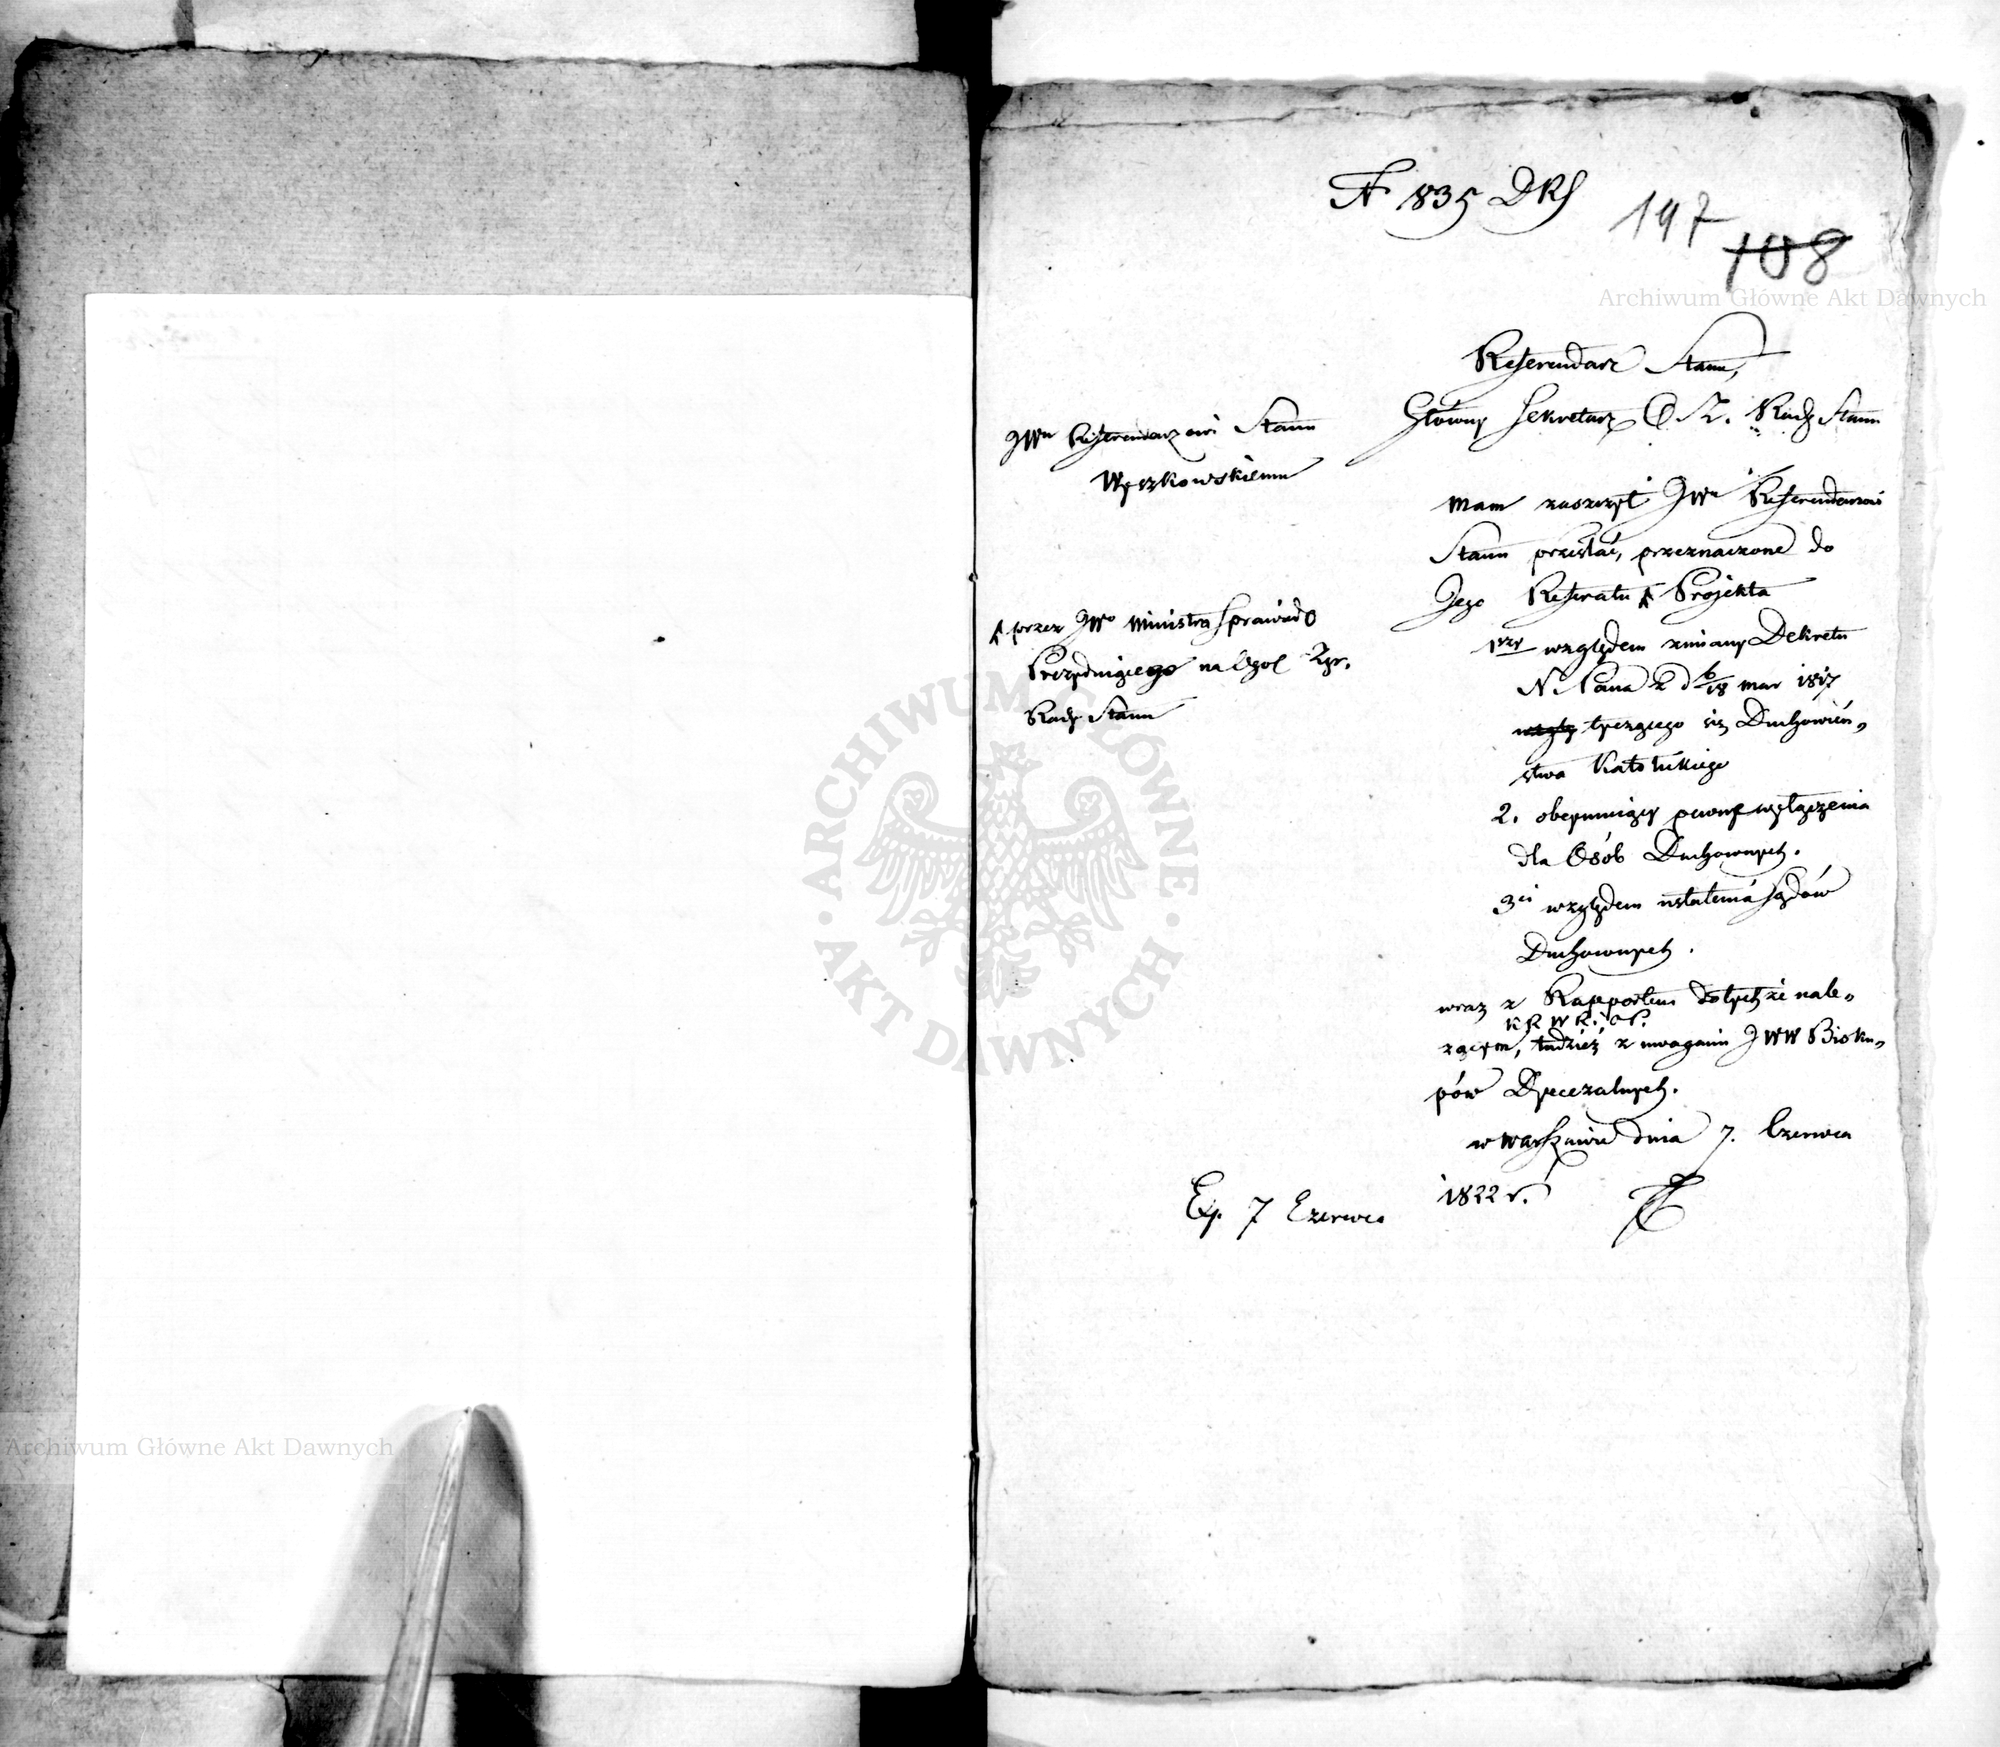 N 835 DRS
197
108
Archiwum Główne Akt Dawnych
Referendarz Stanu,
Główny Sekretarz O. Z. Rady Stanu
JWu Referendarzowi Stanu
Wyczkowskiemu
Mam zaszczyt JWu Referendarzowi
Stanu przesłać, przeznaczone do
Jego Referatu Projekta
przez JWo Ministra Sprawied
Prezydującego na Ogól Zgr.
Rady Stanu
1szy względem zmiany Dekretu
N. Pana z d 6/18 mar 1817
tyczącego się Duchowień„
stwa Katolickiego
2. obeymujący pewne wyłączenia
dla Osób Duchownych.
3ci względem ustalenia Sądów
Duchownych.
wraz z Rapportem do tychże nale„
K R W R. i O P.
żącym, tudzież z uwagami JWW Bisku„
pów Dyecezalnych.
w Warszawie dnia 7. Czerwca
1822 r.
Exp. 7 Czerwca
ARCHIWUM GŁÓWNE
AKT DAWNYCH
Archiwum Główne Akt Dawnych